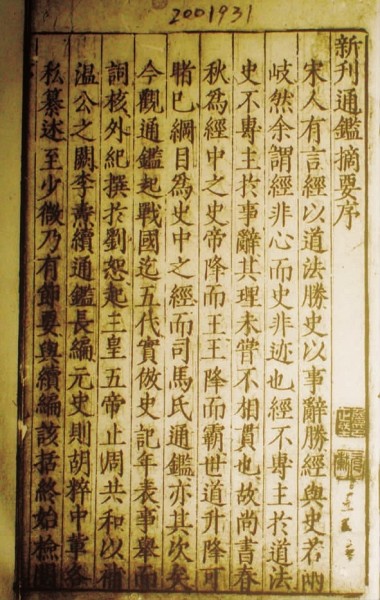 2001931
新刊通鑑摘要序
宋人有言經以道法勝史以事辭勝經與史若兩
岐然余謂經非心而史非迹也經不專主於道法
史不專主於事辭其理未甞不相貫也故尚書春
秋爲經中之史帝降而王王降而霸世道升降可
睹已綱目爲史中之經而司馬氏通鑑亦其次矣
今觀通鑑起戰國迄五代實倣史記年表事舉而
詞核外紀撰於劉恕起三皇五帝止周共和以補
温公之闕李燾續通鑑長編元史則胡粹中軰各
私纂述至少微乃有節要與續編該括終始檢